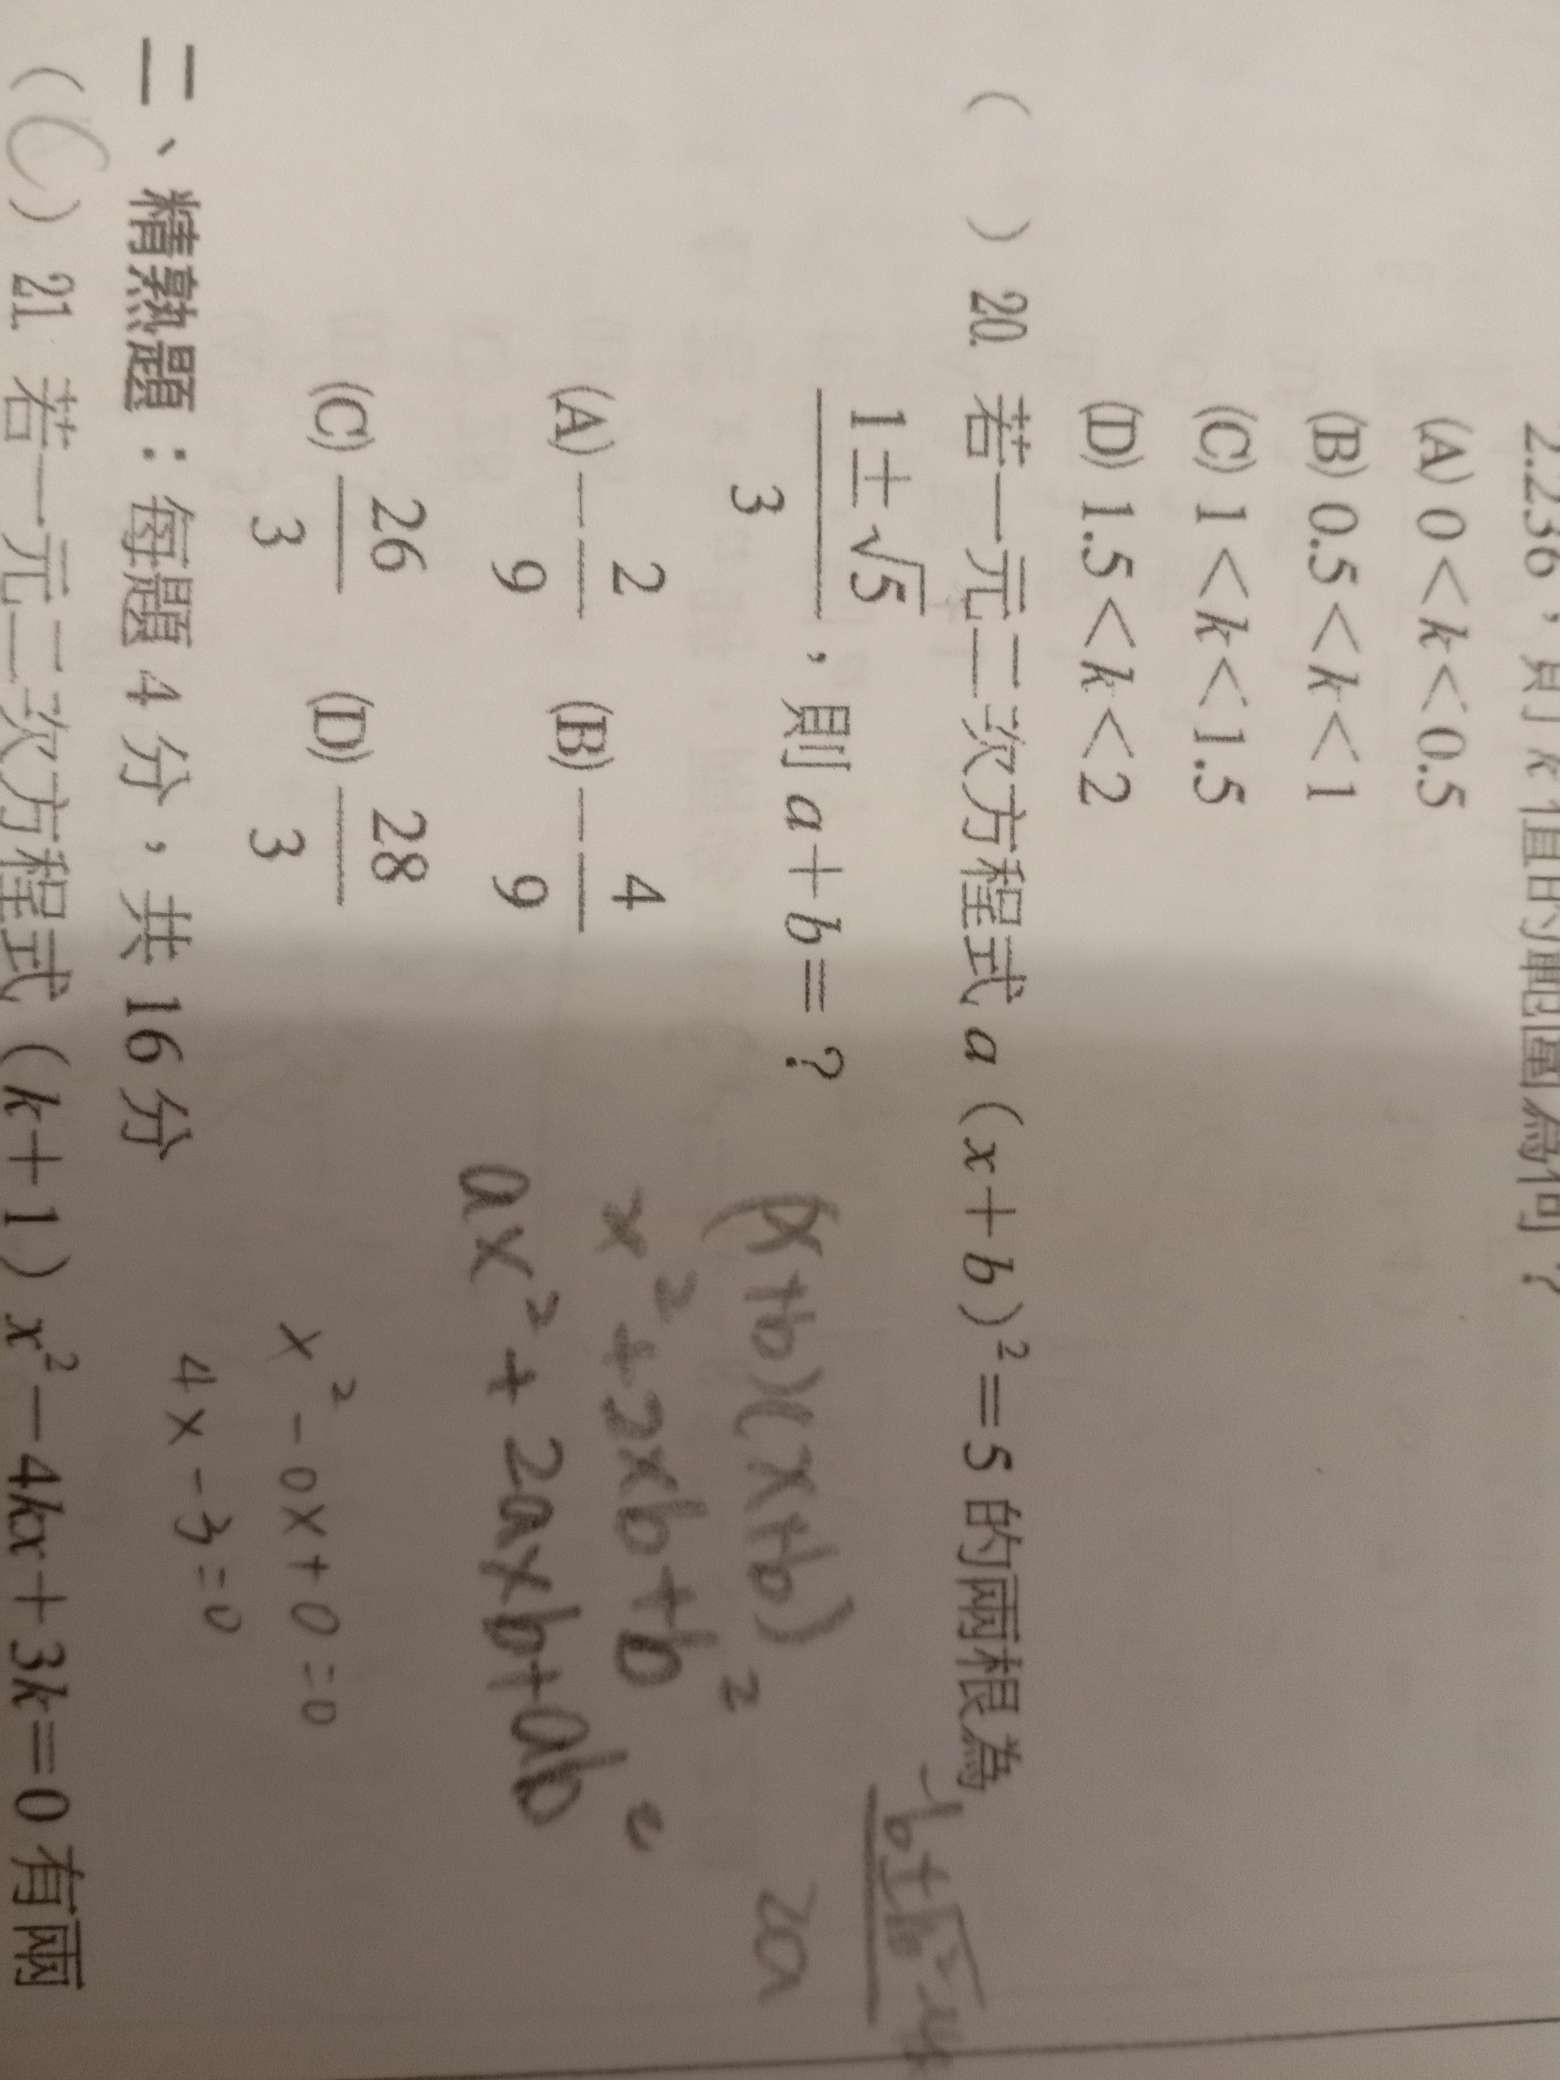 2.236,則 k 值的範圍為何?
(A) 0<k<0.5
(B) 0.5<k<1
(C) 1<k<1.5
(D) 1.5<k<2
( ) 20. 若一元二次方程式 a(x+b)²=5 的兩根為
(1±√5)/3,則 a+b=?
(A) −2/9 (B) −4/9
(C) 26/3 (D) 28/3
(x+b)(x+b)
x²+2xb+b²
ax²+2axb+ab²
2a
x²-0x+0=0
4x-3=0
二、精熟題:每題 4 分,共 16 分
(C) 21. 若一元二次方程式(k+1)x²−4kx+3k=0 有兩